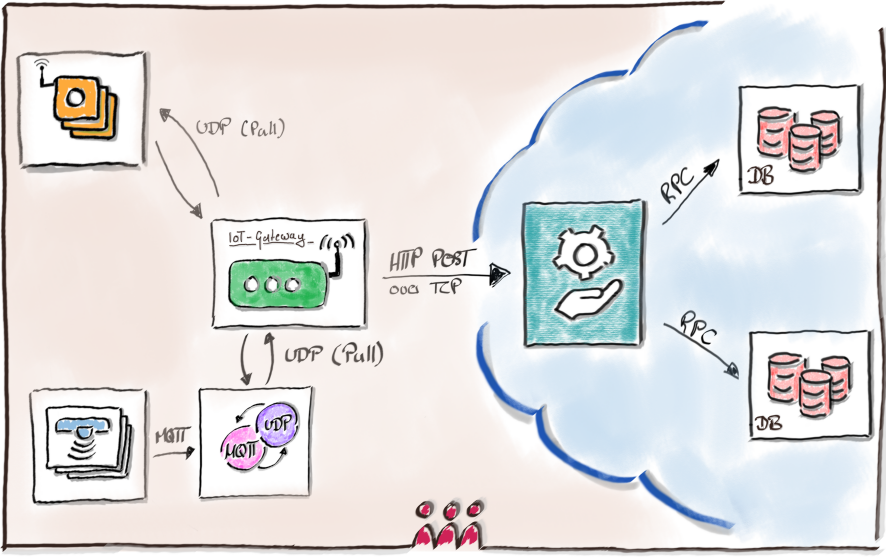 UDP (Pull)
IoT-Gateway
HTTP POST
over TCP
RPC
DB
RPC
DB
UDP (Pull)
MQTT
MQTT
UDP